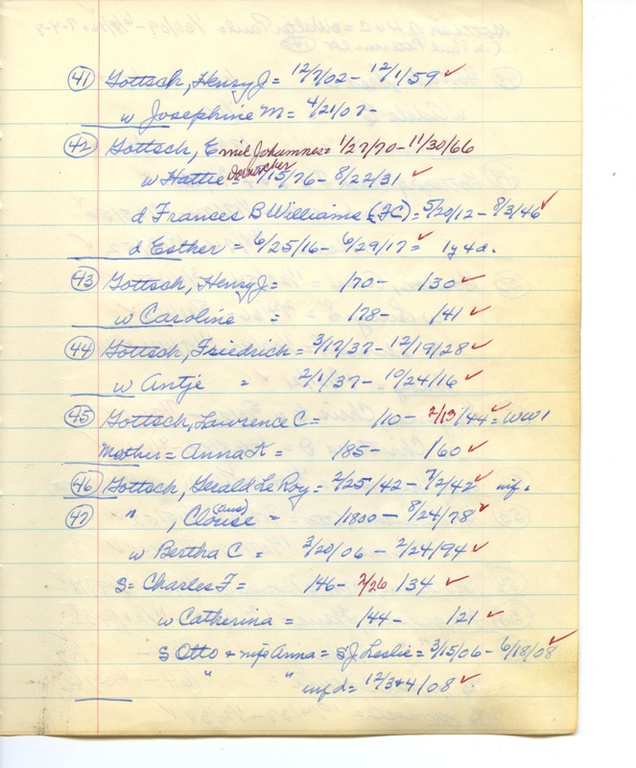 41 Gottsch, Henry J = 12/7/02 - 12/1/59 ✓
w Josephine M = 4/21/07 -
42 Gottsch, Emil Johannes = 1/27/70 - 11/30/66
Dornacher
w Hattie = 7/15/76 - 8/22/31 ✓
d Frances B Williams (FC) = 5/20/12 - 8/3/46 ✓
d Esther = 6/25/16 - 6/29/17 = ✓ 1y 4d.
43 Gottsch, Henry J = /70 - /30 ✓
w Caroline = /78 - /41 ✓
44 Gottsch, Friedrich = 3/17/37 - 12/19/28 ✓
w Antje = 2/1/37 - 10/24/16 ✓
45 Gottsch, Lawrence C = /10 - 2/13/44 ✓ = WW1
Mother = Anna K = /85 - /60 ✓
46 Gottsch, Gerald LeRoy = 2/25/42 - 7/2/42 ✓ inf.
47 " , Clouse (aus) = /1800 - 8/24/78 ✓
w Bertha C = 3/20/06 - 2/24/94 ✓
S = Charles F = /46 - 2/26 /34 ✓
w Catherina = /44 - /21 ✓
S Otto + wife Anna = S J. Leslie = 3/15/06 - 6/18/08 ✓
" " inf d = 12/3+4/08 ✓